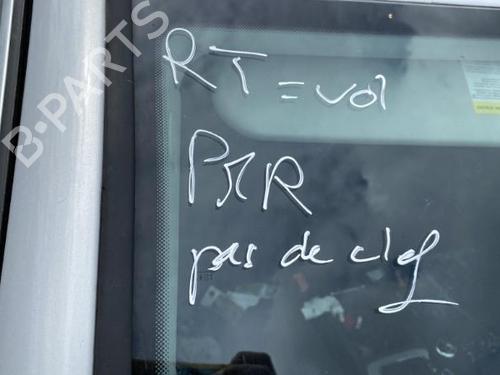 B-PARTS
RT = vol
PJR
pas de clef